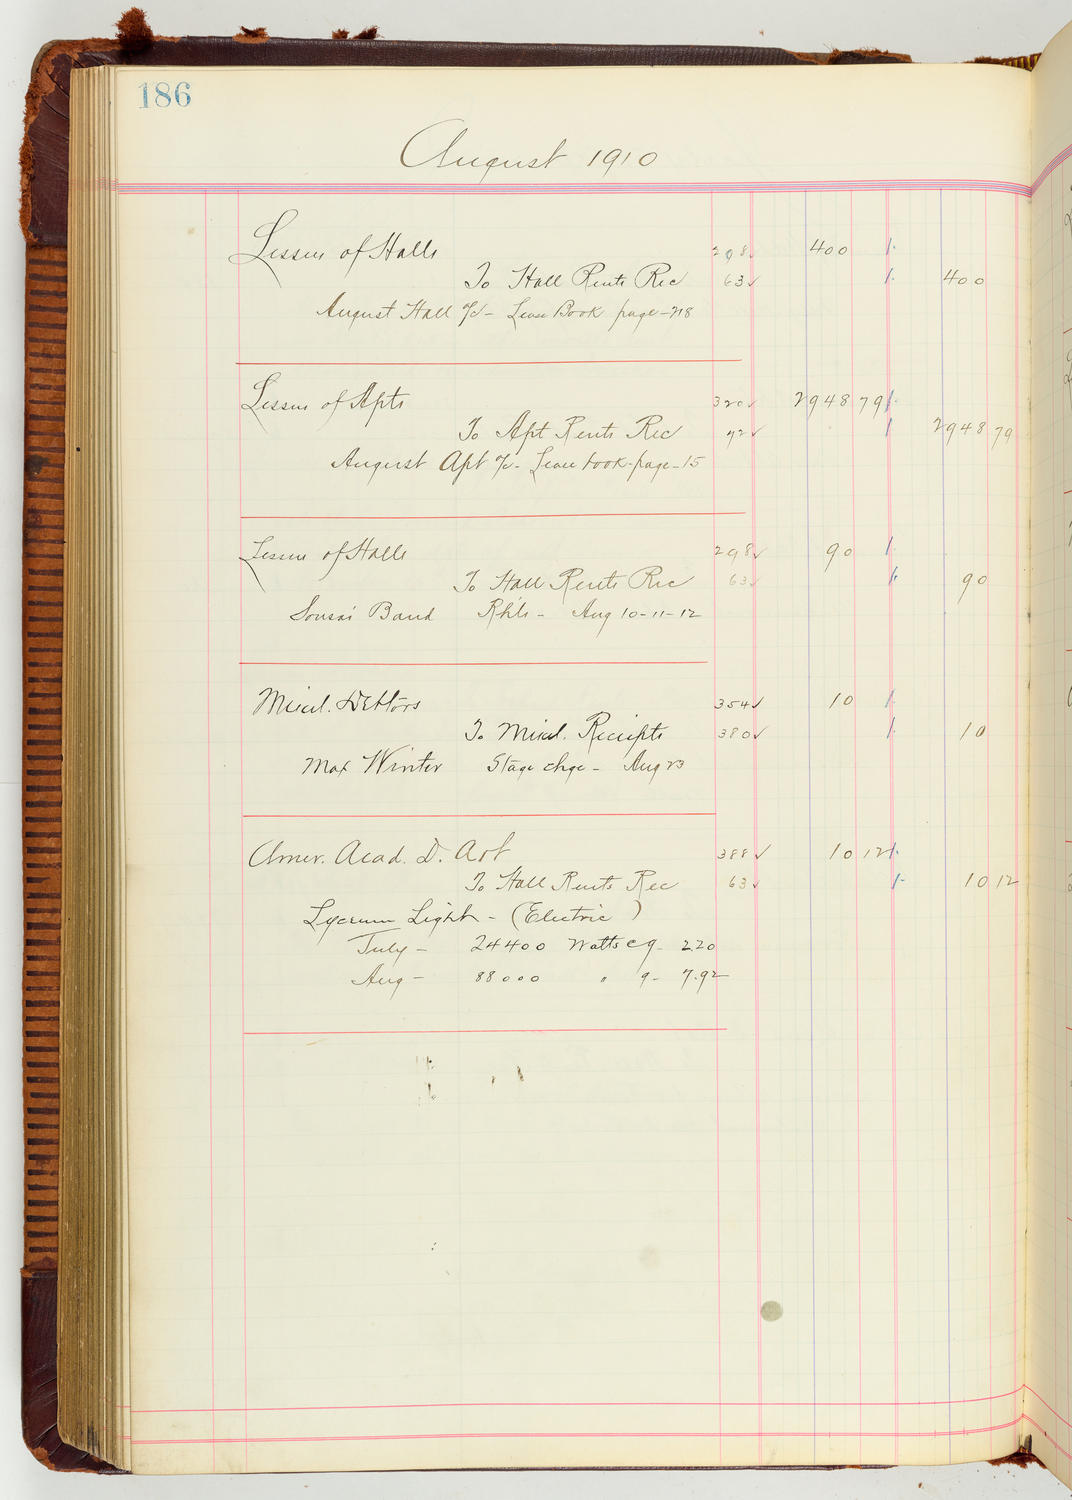 186
August 1910
Lessees of Halls 298 ✓ 400
To Hall Rents Rec 63 ✓ 400
August Hall Lease Book page - 218
Lessees of Apts 320 ✓ 2948 79
To Apt Rents Rec 72 ✓ 2948 79
August Apt Lease book - page - 15
Lessees of Halls 298 ✓ 90
To Hall Rents Rec 63 ✓ 90
Sousa's Band Rhls - Aug 10-11-12
Miscl. Debtors 354 ✓ 10
To Miscl. Receipts 380 ✓ 10
Max Winter Stage chge - Aug 23
Amer. Acad. D. Art 388 ✓ 10 12
To Hall Rents Rec 63 ✓ 10 12
Lyceum Light - (Electric)
July - 24400 Watts @ 9 - 2 20
Aug - 88000 " 9 - 7.92